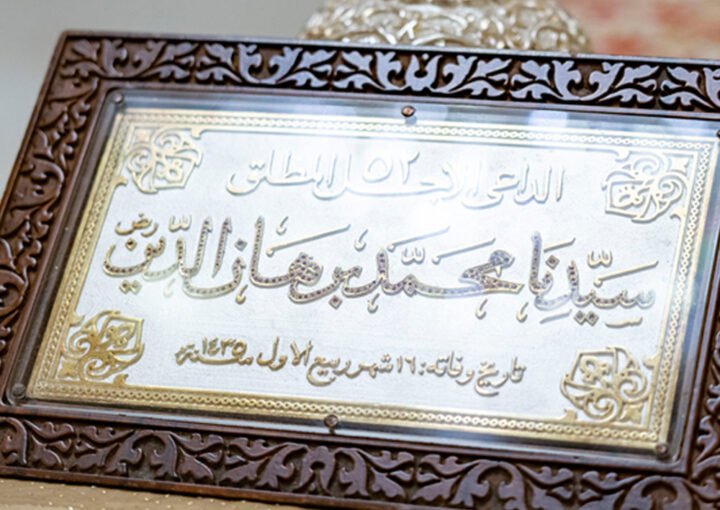 الداعي الاجل المطلق ٥٢
سيّدنا محمّد برهان الدّين رض
تاريخ وفاته: ١٦ شهر ربيع الاول سنة ١٤٣٥